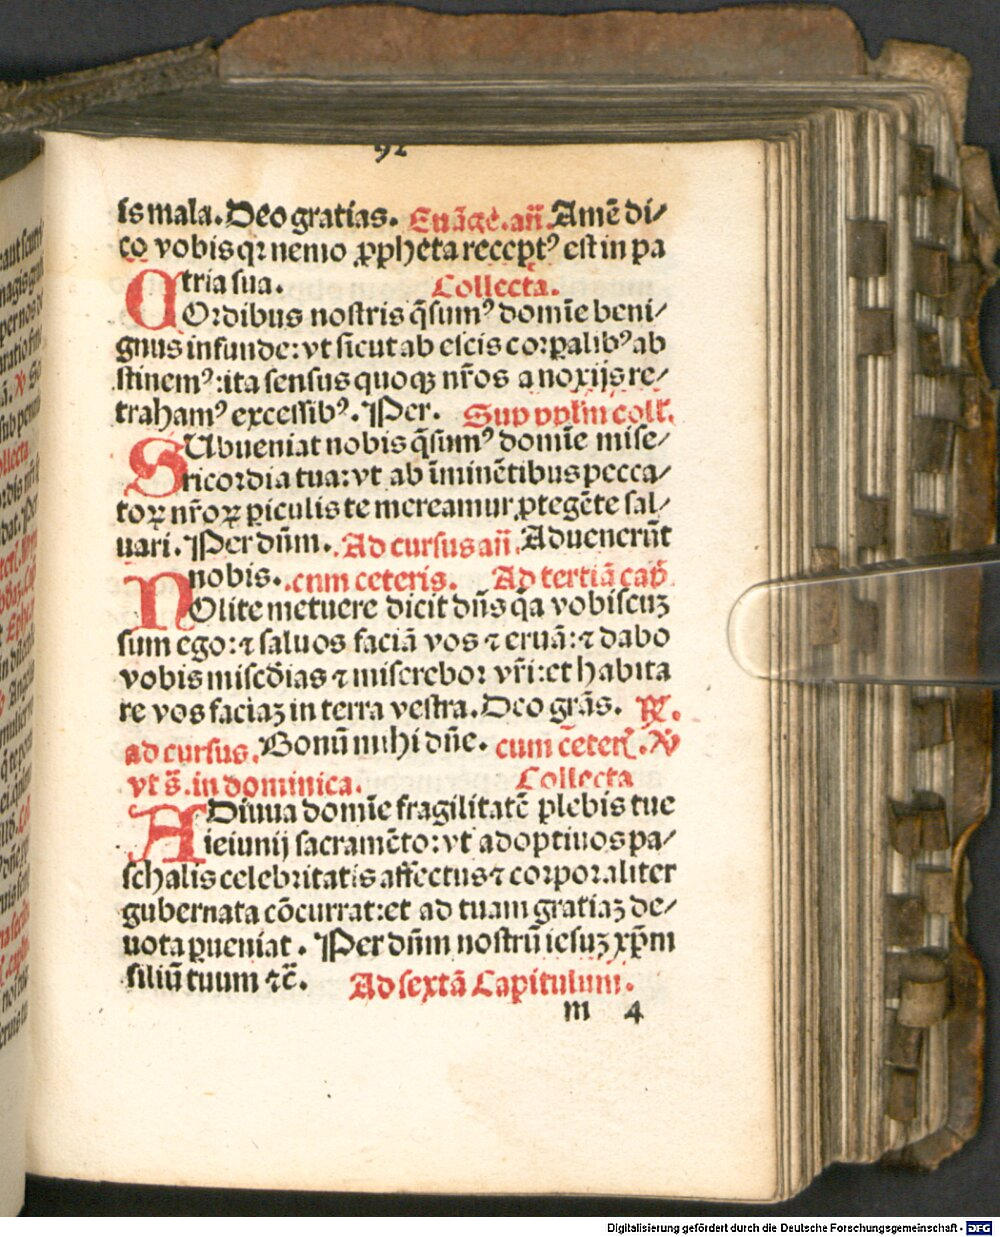 92
is mala. Deo gratias. Euāge. añ. Amē di⸗
co vobis qꝛ nemo ꝓpheta receptꝰ est in pa
tria sua. Collecta.
COꝛdibus nostris q̄sumꝰ domīe beni⸗
gnus infunde: vt sicut ab escis coꝛꝑalibꝰ ab
stinemꝰ: ita sensus quoqꝫ nr̄os a noxijs re⸗
trahamꝰ excessibꝰ. Per. Sup ppl̄m coll̄.
SUbueniat nobis q̄sumꝰ domīe mise⸗
ricoꝛdia tua: vt ab īminētibus pecca⸗
toꝝ nr̄oꝝ ꝑiculis te mereamur ꝓtegēte sal⸗
uari. Per dn̄m. Ad cursus añ. Aduenerūt
nobis. cum ceteris. Ad tertiā cap̄.
NOlite metuere dicit dn̄s q̄a vobiscuꝫ
sum ego: ⁊ saluos faciā vos ⁊ eruā: ⁊ dabo
vobis misc̄dias ⁊ miserebor vr̄i: et habita
re vos faciaꝫ in terra vestra. Deo grās. ꝶ.
ad cursus. Bonū mihi dn̄e. cum ceteꝛꝭ. ℣
vt s̄. in dominica. Collecta
ADiuua domīe fragilitatē plebis tue
ieiunij sacramēto: vt adoptiuos pa⸗
schalis celebritatis affectus ⁊ coꝛpoꝛaliter
gubernata cōcurrat: et ad tuam gratiaꝫ de⸗
uota ꝑueniat. Per dn̄m nostrū iesuꝫ xp̄m
filiū tuum ⁊c̄. Ad sextā Capitulum.
m 4
Digitalisierung gefördert durch die Deutsche Forschungsgemeinschaft - DFG